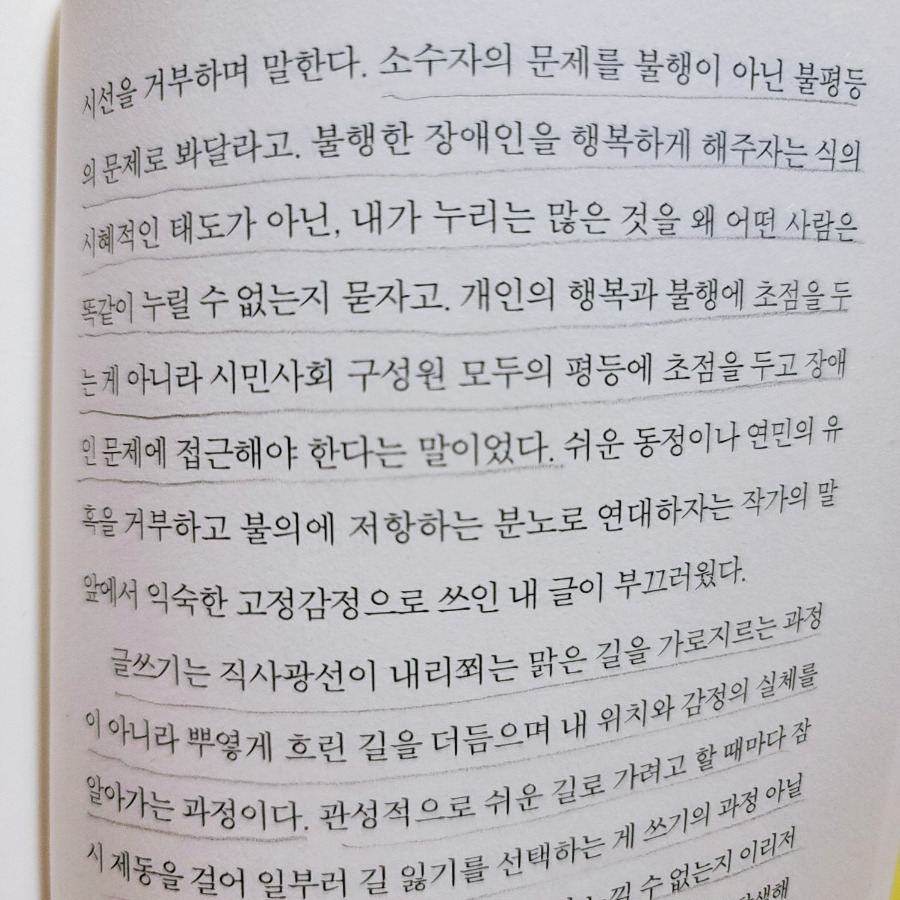 시선을 거부하며 말한다. 소수자의 문제를 불행이 아닌 불평등
의 문제로 봐달라고. 불행한 장애인을 행복하게 해주자는 식의
시혜적인 태도가 아닌, 내가 누리는 많은 것을 왜 어떤 사람은
똑같이 누릴 수 없는지 묻자고. 개인의 행복과 불행에 초점을 두
는 게 아니라 시민사회 구성원 모두의 평등에 초점을 두고 장애
인 문제에 접근해야 한다는 말이었다. 쉬운 동정이나 연민의 유
혹을 거부하고 불의에 저항하는 분노로 연대하자는 작가의 말
앞에서 익숙한 고정감정으로 쓰인 내 글이 부끄러웠다.
글쓰기는 직사광선이 내리쬐는 맑은 길을 가로지르는 과정
이 아니라 뿌옇게 흐린 길을 더듬으며 내 위치와 감정의 실체를
알아가는 과정이다. 관성적으로 쉬운 길로 가려고 할 때마다 잠
시 제동을 걸어 일부러 길 잃기를 선택하는 게 쓰기의 과정 아닐
수 없는지 이리저